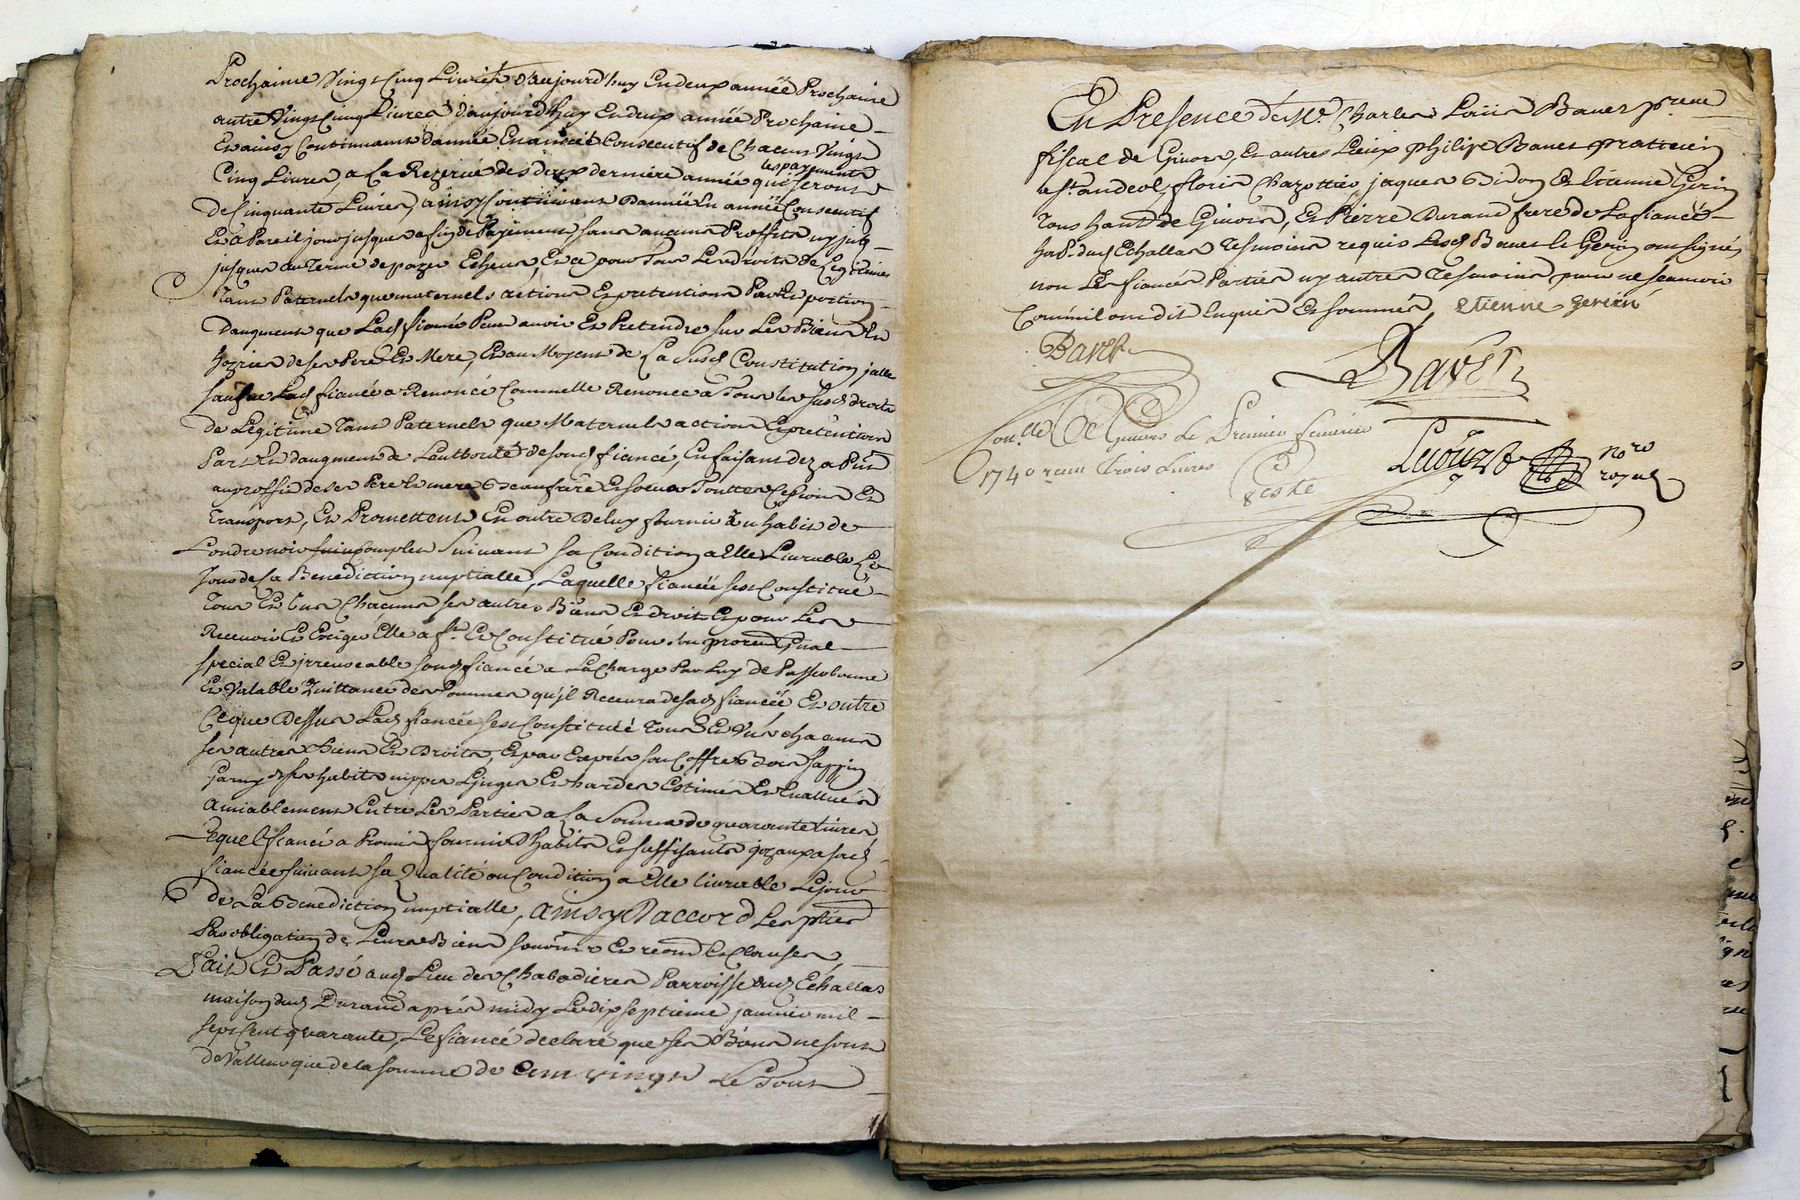 Prochaine Vingt Cinq Livres d'aujourd'huy En deux année Prochaine
autre Vingt Cinq Livres d'aujourd'huy En deux année Prochaine
Et ainsy Continuant d'année En année Consecutif de Chacun Vingt
les payements
Cinq Livres, a La Rezerve des deux derniere année qui seront
de Cinquante Livres, ainsy Continuant D'année En année Consecutif
Et a Pareil jour jusques a fin de Payement sans aucuns Proffits ny
jusques au Terme de payer Echeus, Et ce pour Tous Les droits de Legitimes
Tant Paternels que maternels actions Et pretentions Part Et portion
D'augment que Lad fiancée Peut avoir Et Pretendre sur Les Biens Et
de ses Pere Et Mere, Et au Moyent de La Susd Constitution
Lad fiancée a Renoncé Comme elle Renonce a Tous les susd droits
de Legitime Tant Paternels que Maternels actions Et pretention
Part Et d'augment de L'authorité de sond fiancé, En faisant dez a Pnt
au proffit de ses Pere Et mere Beaufrere Et soeur Touttes Cessions Et
Transport, Et Promettent En outre De luy fournir Un habit de
Londre noir Complet Suivant sa Condition a Elle Livrable Le
Jour de La Benediction nuptialle, Laquelle fiancée s'est Constitué
Tous Et Uns Chacuns ses autres Biens Et droits Et pour Les
Recevoir Et Exiger Elle a ft Et Constitué Pour son procur Gnal
special Et irrevocable sond fiancé a La Charge Par Luy de Passer bonne
Et Valable Quittance des Sommes qu'il Recevra de sad fiancée Et outre
Ce que Dessus Lad fiancée s'est Constitué Tous Et Uns chacuns
ses autres Biens Et Droits, Et par Exprés son Coffre Bois sappin
garny de ses habits nippes Linges Et hardes Estimés Et Evallués
amiablement Entre Les Parties a La Somme de quarante livres
Lequel fiancé a Promis fournir D'habits Et suffisants joyaux a sad
fiancée suivant sa Qualité ou Condition a Elle livrable Le jour
de La Benediction nuptialle, Ainsy D'accord Les pties
Par obligation de Leurs Biens Et Clauses
Fait Et Passé aud Lieu des Chabadieres Parroisse dud Echallas
maison dud Durand aprés midy Le dix septieme janvier mil
sept Cent quarante, Le fiancé declaré que ses Biens ne sont
de Valleur que de la somme de Cent vingt Le Tout
En Presence de Mr. Charles Loüis Bavet
fiscal de Givors, Et autres Lieux philipe Bavet pratticien
a St. andeol, floris Chazottier jaques Bidon Et Etienne Gerin
Tous habt. de Givors, Et Pierre Durand frere de La fiancée
habt. dud Echallas Tesmoins requis Lesd Bavet le Gerin ont signés
non Les fiancés Parties ny autres Tesmoins pour ne sçavoir
Comme ils ont dit Enquis Et sommés, Etienne Gerin
Bavet
Bavet
Conllé a Givors Le Premier fevrier
1740 receu Trois Livres
Coste
nore
royal